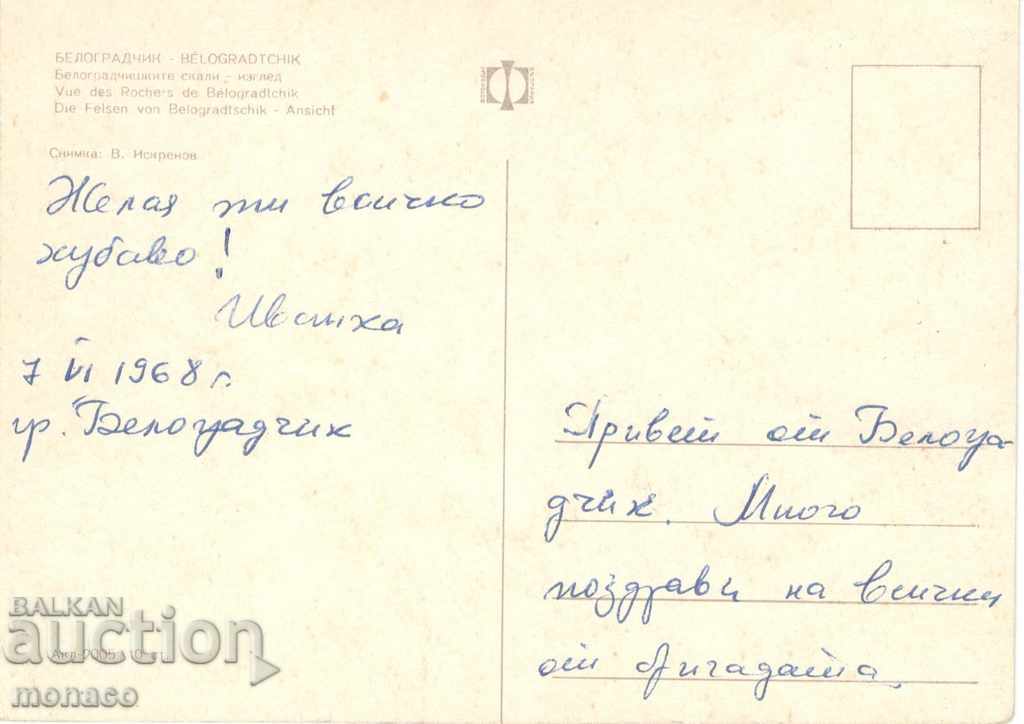 БЕЛОГРАДЧИК - BÉLOGRADTCHIK
Белоградчишките скали - изглед
Vue des Rochers de Bélogradtchik
Die Felsen von Belogradtschik - Ansicht
Снимка: В. Искренов
Желая ти всичко
хубаво!
Иванка
7 VI 1968 г.
гр. Белоградчик
Привет от Белогра-
дчик. Много
поздрави на всички
от бригадата.
BALKAN
auction
monaco